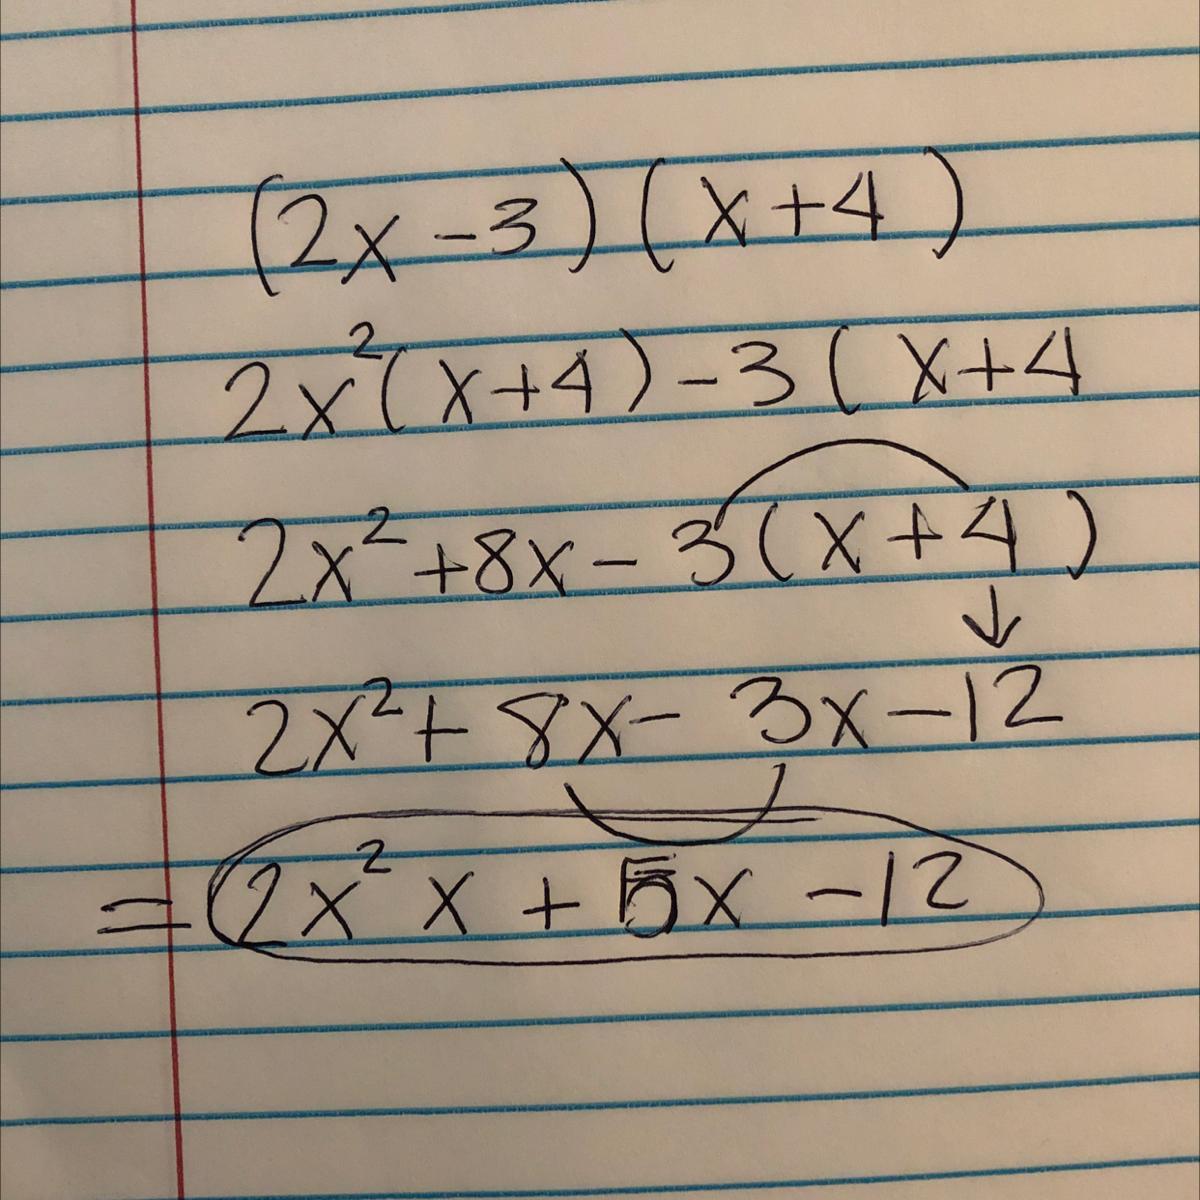 (2x - 3) (x + 4)
2x²(x + 4) - 3(x + 4
2x² + 8x - 3(x + 4)
2x² + 8x - 3x - 12
= 2x² x + 5x - 12